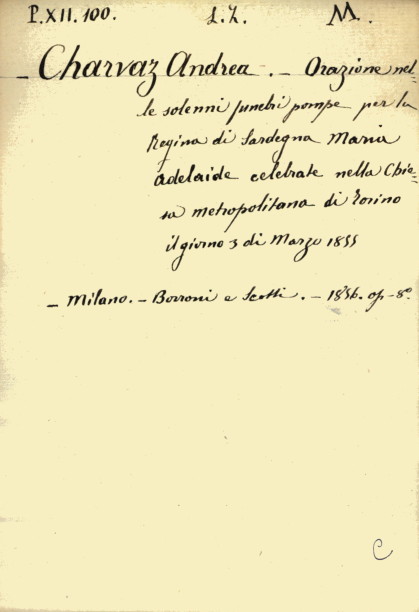 P.XII.100. L.Z. M.
- Charvaz Andrea. - Orazione nel-
le solenni funebri pompe per la
Regina di Sardegna Maria
Adelaide celebrate nella Chie-
sa metropolitana di Torino
il giorno 3 di Marzo 1855
- Milano. - Borroni e Scotti. - 1856. op - 8°
C